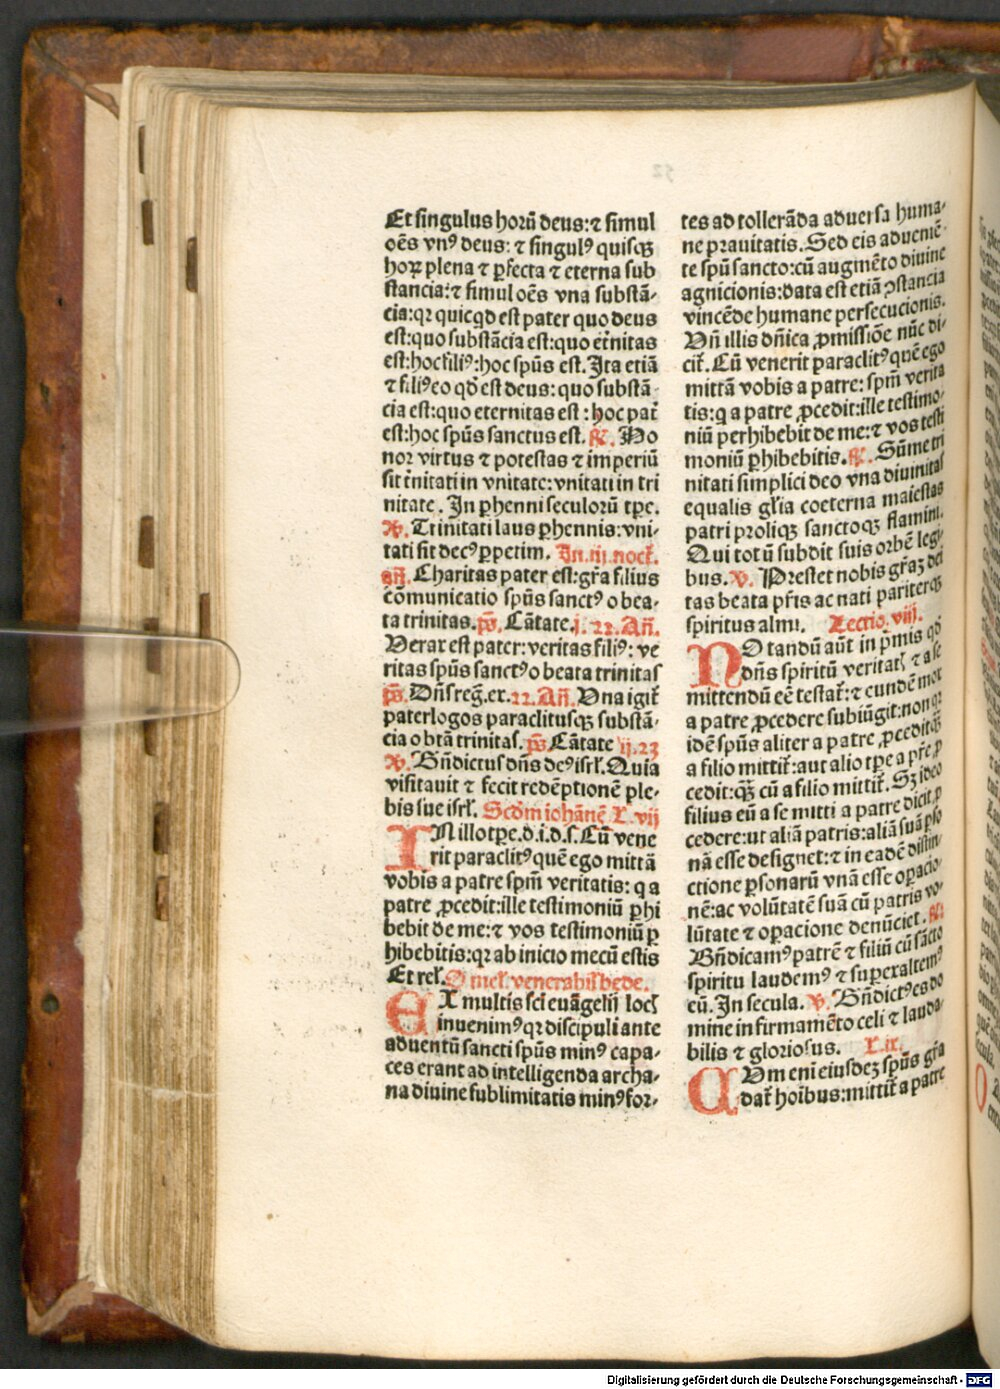 Et singulus horū deus:⁊ simul
oēs vnꝰ deus: ⁊ singulꝰ quisqꝫ
hoꝝ plena ⁊ ꝑfecta ⁊ eterna sub
stancia:⁊ simul oēs vna substā-
cia:qꝛ quicqd est pater quo deus
est:quo substācia est:quo et̄nitas
est:hoc filiꝰ:hoc spūs est. Ita etiā
⁊ filiꝰ eo qd̄ est deus: quo substā-
cia est:quo eternitas est : hoc pat̄
est:hoc spūs sanctus est. ꝶ. Ho
nor virtus ⁊ potestas ⁊ imperiū
sit t̄nitati in vnitate: vnitati in tri
nitate. In ꝑhenni seculorū tꝑe.
℣. Trinitati laus ꝑhennis: vni-
tati sit decꝰ ꝑpetim. In.iij.noct̄.
añ. Charitas pater est: gr̄a filius
cōmunicatio spūs sanctꝰ o bea-
ta trinitas. ps̄. Cātate.j. 22. Añ.
Verax est pater: veritas filiꝰ: ve
ritas spūs sanctꝰ o beata trinitas
ps̄. Dn̄s reḡ.ex. 22. Añ. Vna igit̄
pater logos paraclitusqꝫ substā-
cia o btā trinitas. ps̄ Cātate ij.23
℣. Bn̄dictus dn̄s deꝰ isrl̄. Quia
visitauit ⁊ fecit redēptionē ple-
bis sue isrl̄. Scd̄m iohānē L. vij
IN illo tꝑe.d.i.d.s. Cū vene
rit paraclitꝰ quē ego mittā
vobis a patre spm̄ veritatis: q a
patre ꝓcedit:ille testimoniū ꝑhi
bebit de me:⁊ vos testimoniū ꝑ
hibebitis:qꝛ ab inicio mecū estis
Et rel̄. Omel̄. venerabil̄ bede.
EX multis sci euāgelij locꝭ
inuenimꝰ qꝛ discipuli ante
aduentū sancti spūs minꝰ capa-
ces erant ad intelligenda archa-
na diuine sublimitatis minꝰ for-
tes ad tollerāda aduersa huma-
ne prauitatis. Sed eis aduenīē-
te spū sancto: cū augmēto diuine
agnicionis: data est etiā ꝯstancia
vincēde humane persecucionis.
Vn̄ illis dn̄ica ꝓmissiōe nūc di-
cit̄. Cū venerit paraclitꝰ quē ego
mittā vobis a patre: spm̄ verita
tis: q a patre ꝓcedit: ille testimo-
niū perhibebit de me: ⁊ vos testi
moniū ꝑhibebitis. ꝶ. Sūme tri
nitati simplici deo vna diuinitas
equalis gl̄ia coeterna maiestas
patri proliqꝫ sanctoqꝫ flamini.
Qui totū subdit suis orbē legi-
bus. ℣. Prestet nobis gr̄aꝫ dei
tas beata pr̄is ac nati pariterqꝫ
spiritus almi. Lectio. viij.
NOtandū aūt in pͥmis qd̄
dn̄s spiritū veritatꝭ ⁊ a se
mittendū eē testat̄: ⁊ eundē mox
a patre ꝓcedere subiūgit: non qꝛ
idē spūs aliter a patre ꝓcedit qꝫ
a filio mittit̄: aut alio tꝑe a pr̄e ꝓ
cedit: qꝫ cū a filio mittit̄. Sꝫ ideo
filius eū a se mitti a patre dicit ꝓ
cedere: ut aliā patris: aliā suā ꝑso
nā esse designet: ⁊ in eadē distin-
ctione ꝑsonarū vnā esse oꝑacio-
nē: ac volūtatē suā cū patris vo-
lūtate ⁊ oꝑacione denūciet. ꝶ.
Bn̄dicamꝰ patrē ⁊ filiū cū sācto
spiritu laudemꝰ ⁊ suꝑexaltemꝰ
eū. In secula. ℣. Bn̄dictꝰ es do
mine in firmamēto celi ⁊ lauda-
bilis ⁊ gloriosus. L. ix.
CVm eni eiusdeꝫ spūs gr̄a
dat̄ hoībus: mittit̄ a patre
Digitalisierung gefördert durch die Deutsche Forschungsgemeinschaft - DFG